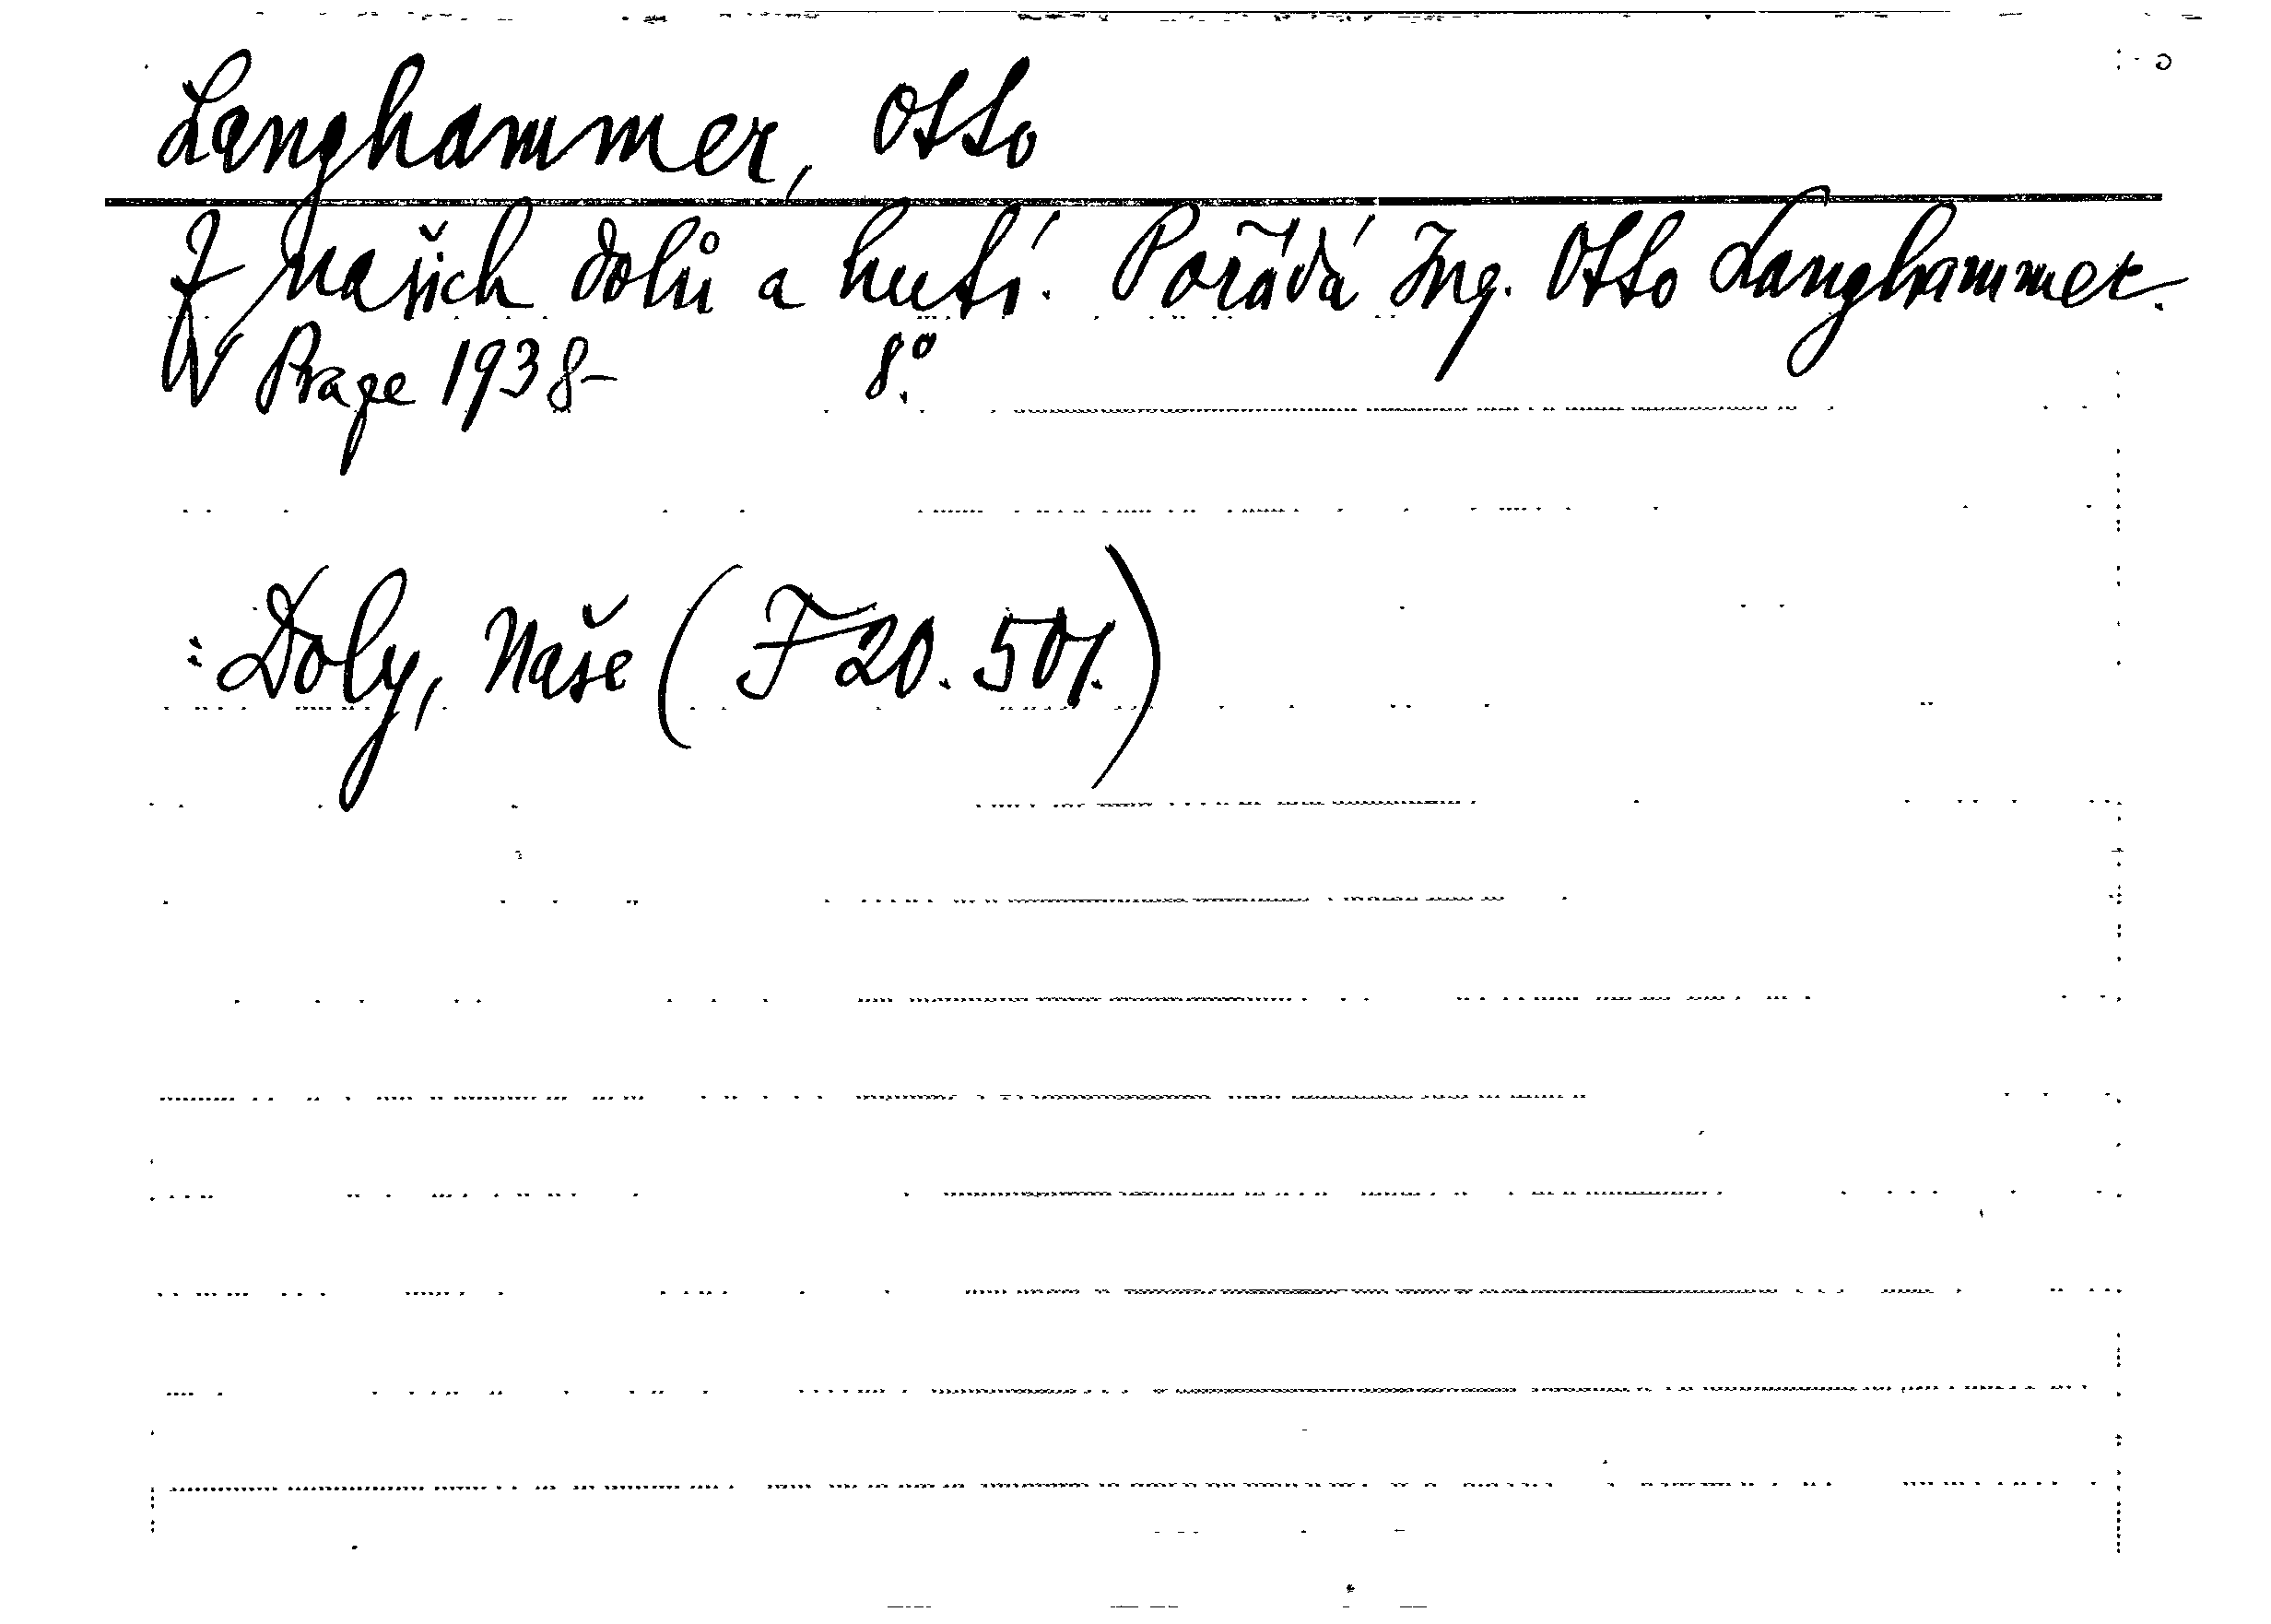 Langhammer, Otto
Z našich dolů a hutí. Pořádá Ing. Otto Langhammer.
V Praze 1938- 8°.
: Doly, Naše (F 20.501.)